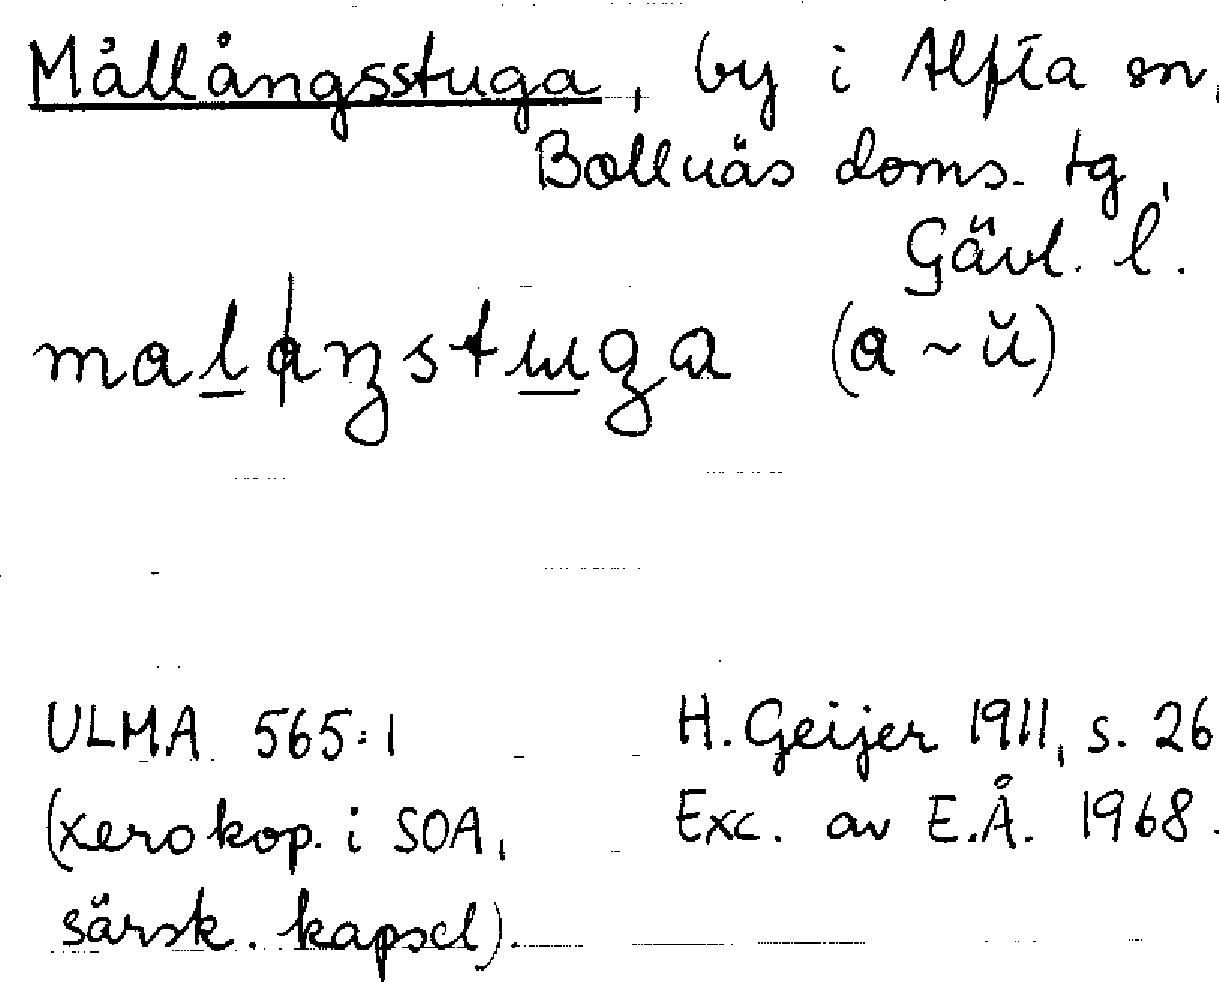 Mållångsstuga, by i Alfta sn,
Bollnäs doms. tg,
Gävl. l.
(a ~ ŭ)
ULMA 565:1
(xerokop. i SOA,
särsk. kapsel).
H. Geijer 1911, s. 26
Exc. av E.Å. 1968.